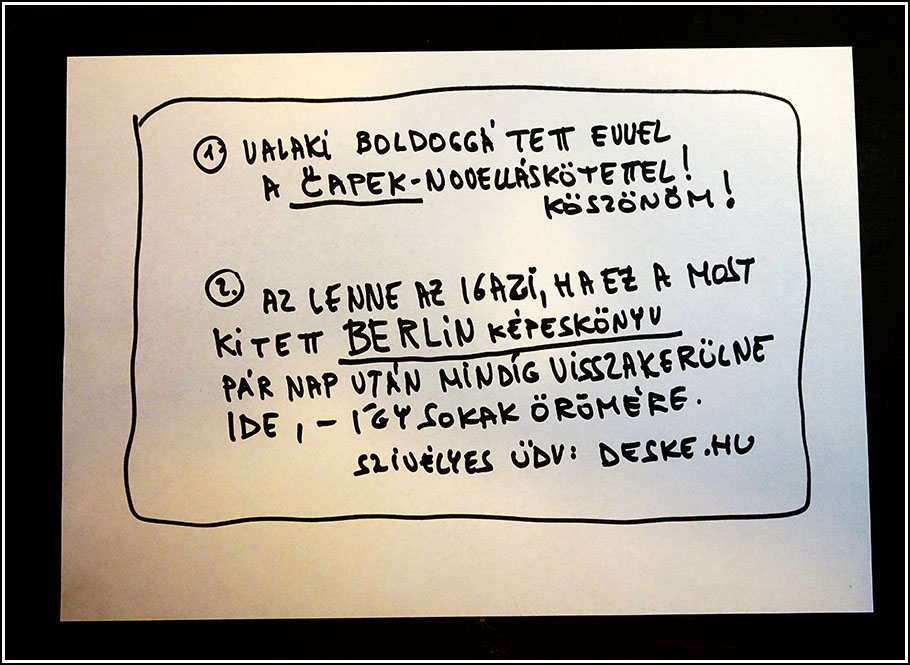 1. VALAKI BOLDOGGÁ TETT EVVEL
A ČAPEK-NOVELLÁSKÖTETTEL!
KÖSZÖNÖM!
2. AZ LENNE AZ IGAZI, HA EZ A MOST
KITETT BERLIN KÉPESKÖNYV
PÁR NAP UTÁN MINDÍG VISSZAKERÜLNE
IDE, – ÍGY SOKAK ÖRÖMÉRE.
SZIVÉLYES ÜDV: DESKE.HU